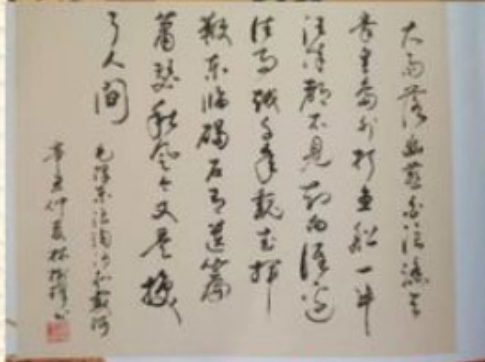 大雨落幽燕白浪滔天
秦皇島外打魚船一片
汪洋都不見知向誰邊
往事越千年魏武揮
鞭东临碣石有遺篇
蕭瑟秋風今又是換
了人间
毛澤东词浪淘沙北戴河
辛丑仲夏林書